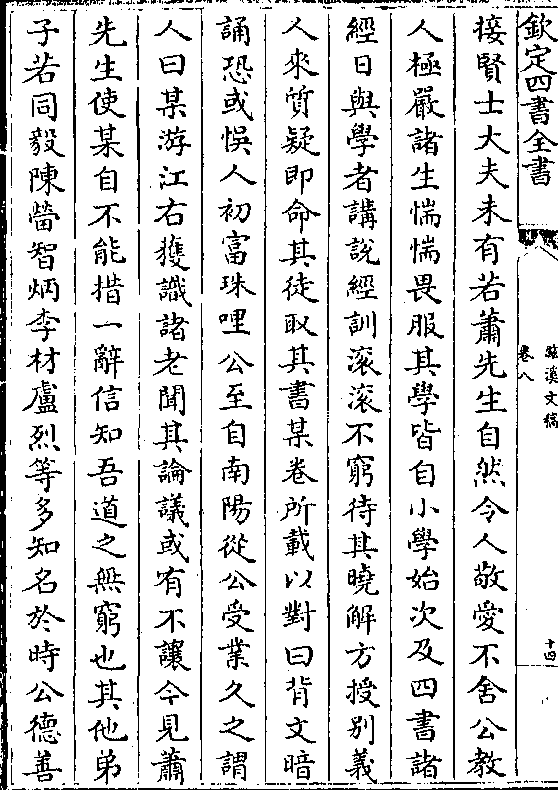 欽定四書全書
滋溪文稿
卷八
十四
接賢士大夫未有若蕭先生自然令人敬愛不舍公教
人極嚴諸生惴惴畏服其學皆自小學始次及四書諸
經日與學者講說經訓滾滾不窮待其曉解方授别義
人來質疑即命其徒取其書某卷所載以對曰背文暗
誦恐或悮人初富珠哩公至自南陽從公受業久之謂
人曰某游江右獲識諸老聞其論議或有不讓今見蕭
先生使某自不能措一辭信知吾道之無窮也其他弟
子若同毅陳嵤智炳李材盧烈等多知名於時公德善